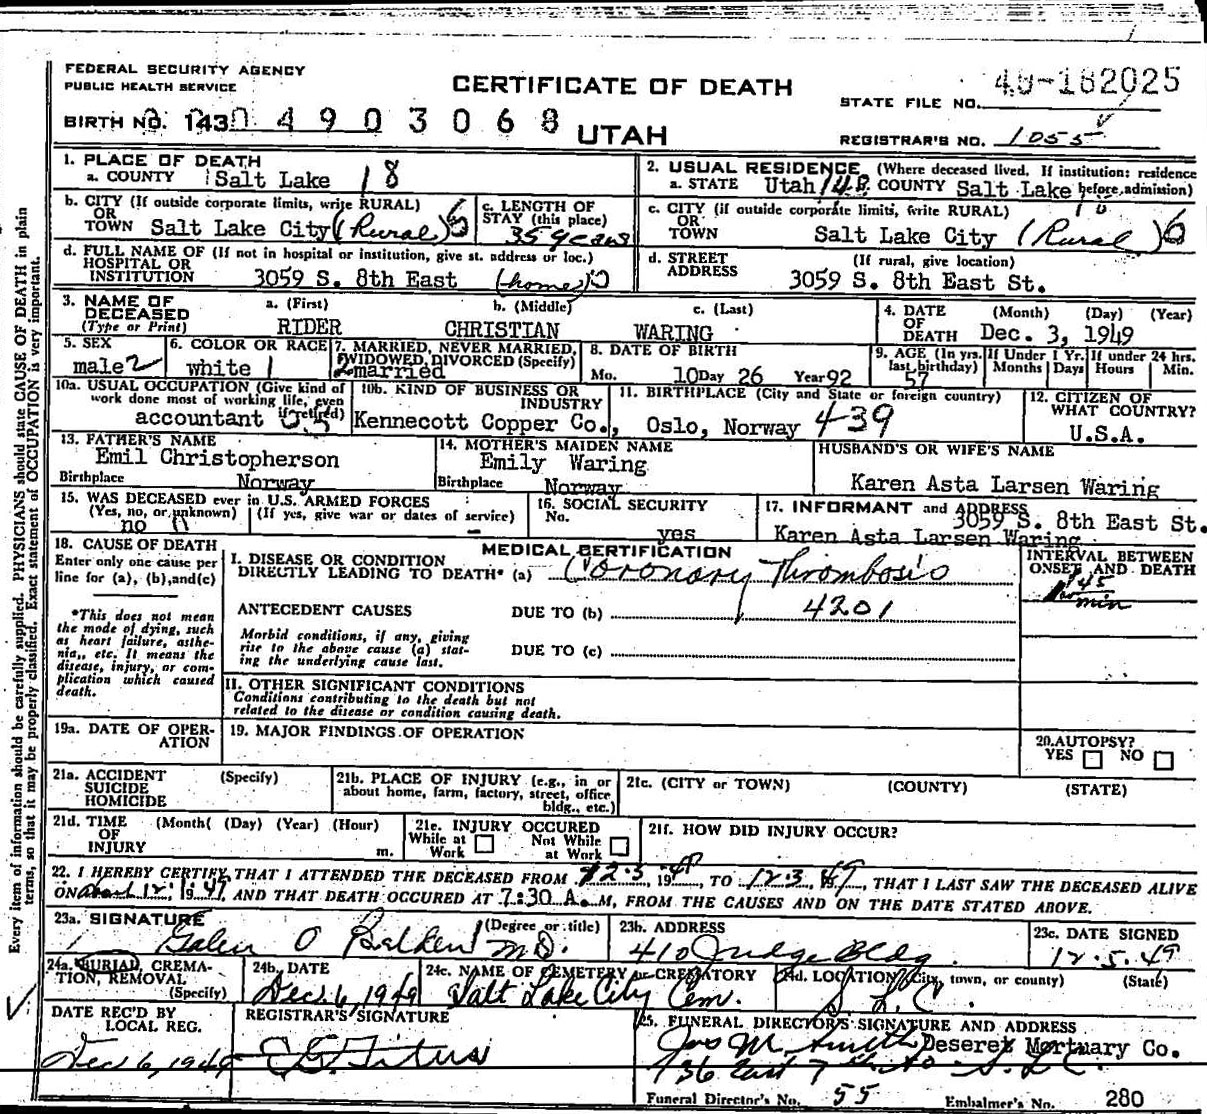 FEDERAL SECURITY AGENCY
PUBLIC HEALTH SERVICE
CERTIFICATE OF DEATH
UTAH
STATE FILE NO. 49-182025
BIRTH NO. 143 04903068
REGISTRAR'S NO. 1055
1. PLACE OF DEATH
a. COUNTY Salt Lake 18
2. USUAL RESIDENCE (Where deceased lived. If institution: residence before admission)
a. STATE Utah b. COUNTY Salt Lake
b. CITY (If outside corporate limits, write RURAL)
OR
TOWN Salt Lake City (Rural) 6
c. LENGTH OF
STAY (this place)
35 years
c. CITY (if outside corporate limits, write RURAL)
OR
TOWN Salt Lake City (Rural) 6
d. FULL NAME OF (If not in hospital or institution, give st. address or loc.)
HOSPITAL OR
INSTITUTION 3059 S. 8th East (home)
d. STREET (If rural, give location)
ADDRESS 3059 S. 8th East St.
3. NAME OF
DECEASED
(Type or Print)
a. (First) b. (Middle) c. (Last)
RIDER CHRISTIAN WARING
4. DATE (Month) (Day) (Year)
OF
DEATH Dec. 3, 1949
5. SEX
male 2
6. COLOR OR RACE
white 1
7. MARRIED, NEVER MARRIED,
WIDOWED, DIVORCED (Specify)
married
8. DATE OF BIRTH
Mo. 10 Day 26 Year 92
9. AGE (In yrs. last birthday) 57
If Under 1 Yr. Months Days
If under 24 hrs. Hours Min.
10a. USUAL OCCUPATION (Give kind of
work done most of working life, even
if retired) accountant
10b. KIND OF BUSINESS OR
INDUSTRY
Kennecott Copper Co.,
11. BIRTHPLACE (City and State or foreign country)
Oslo, Norway 439
12. CITIZEN OF
WHAT COUNTRY?
U.S.A.
13. FATHER'S NAME
Emil Christopherson
Birthplace Norway
14. MOTHER'S MAIDEN NAME
Emily Waring
Birthplace Norway
HUSBAND'S OR WIFE'S NAME
Karen Asta Larsen Waring
15. WAS DECEASED ever in U.S. ARMED FORCES
(Yes, no, or unknown) (If yes, give war or dates of service)
no 0 -
16. SOCIAL SECURITY
No.
yes
17. INFORMANT and ADDRESS
3059 S. 8th East St.
Karen Asta Larsen Waring
18. CAUSE OF DEATH
Enter only one cause per
line for (a), (b), and (c)
*This does not mean
the mode of dying, such
as heart failure, asthe-
nia,, etc. It means the
disease, injury, or com-
plication which caused
death.
MEDICAL CERTIFICATION
I. DISEASE OR CONDITION
DIRECTLY LEADING TO DEATH* (a) Coronary Thrombosis
ANTECEDENT CAUSES DUE TO (b) 4201
Morbid conditions, if any, giving
rise to the above cause (a) stat-
ing the underlying cause last.
DUE TO (c)
II. OTHER SIGNIFICANT CONDITIONS
Conditions contributing to the death but not
related to the disease or condition causing death.
INTERVAL BETWEEN
ONSET AND DEATH
45
min
19a. DATE OF OPER-
ATION
19. MAJOR FINDINGS OF OPERATION
20. AUTOPSY?
YES NO
21a. ACCIDENT (Specify)
SUICIDE
HOMICIDE
21b. PLACE OF INJURY (e.g., in or
about home, farm, factory, street, office
bldg., etc.)
21c. (CITY or TOWN) (COUNTY) (STATE)
21d. TIME (Month( (Day) (Year) (Hour)
OF
INJURY m.
21e. INJURY OCCURED
While at Work Not While at Work
21f. HOW DID INJURY OCCUR?
22. I HEREBY CERTIFY THAT I ATTENDED THE DECEASED FROM 12-3, 1949, TO 12-3, 49, THAT I LAST SAW THE DECEASED ALIVE
ON about 12-1, 1949, AND THAT DEATH OCCURED AT 7:30 A.M, FROM THE CAUSES AND ON THE DATE STATED ABOVE.
23a. SIGNATURE (Degree or title)
Galen O Belken M.D.
23b. ADDRESS
410 Judge Bldg.
23c. DATE SIGNED
12-5-49
24a. BURIAL, CREMA-
TION, REMOVAL
(Specify)
24b. DATE
Dec. 6, 1949
24c. NAME OF CEMETERY or CREMATORY
Salt Lake City Cem.
24d. LOCATION (City, town, or county) (State)
S. L. C.
DATE REC'D BY
LOCAL REG.
Dec 6, 1949
REGISTRAR'S SIGNATURE
Titus
25. FUNERAL DIRECTOR'S SIGNATURE AND ADDRESS
Jos M Smith Deseret Mortuary Co.
36 East 7th So - S.L.C.
Funeral Director's No. 55 Embalmer's No. 280
Every item of information should be carefully supplied. PHYSICIANS should state CAUSE OF DEATH in plain
terms, so that it may be properly classified. Exact statement of OCCUPATION is very important.